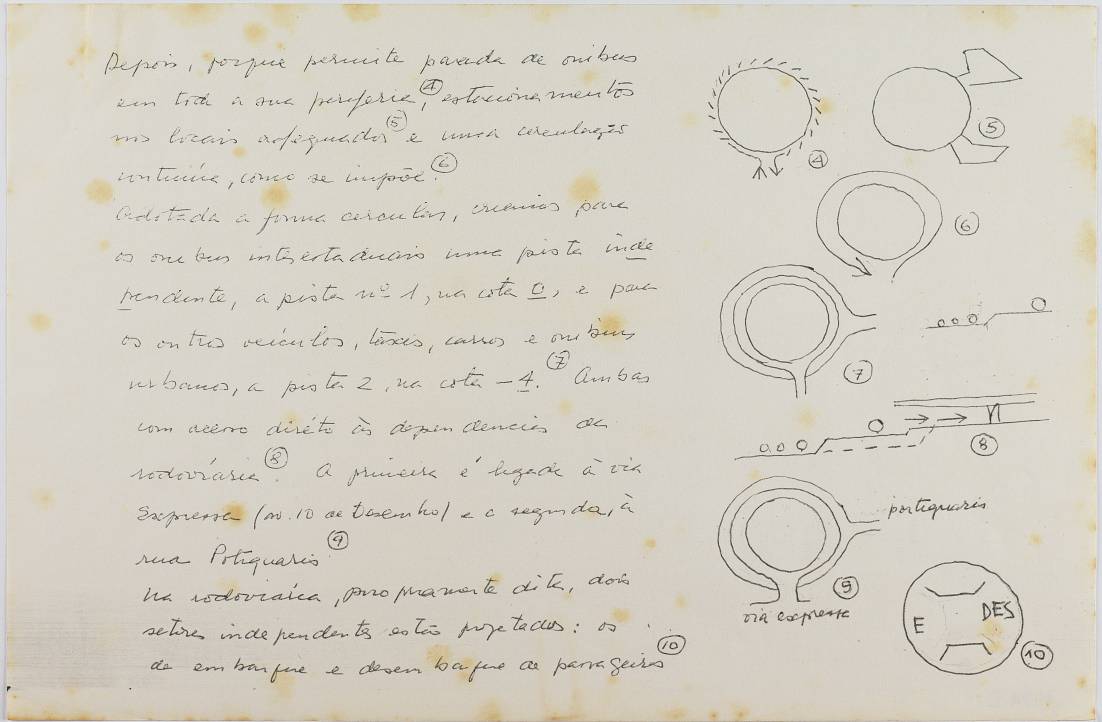 Depois, porque permite parada de onibus
em toda a sua periferia④, estacionamentos
nos locais adequados⑤ e uma circulação
contínua, como se impõe.⑥
Adotada a forma circular, criamos para
os onibus interestaduais uma pista inde
pendente, a pista nº 1, na cota 0, e para
os outros veículos, táxis, carros e onibus
urbanos, a pista 2, na cota -4.⑦ Ambas
com acesso diréto às dependencias da
rodoviária⑧. A primeira é ligada à via
Expressa (av. 10 de Dezembro) e a segunda, à
rua Potiguaris⑨
Na rodoviária, propriamente dita, dois
setores independentes estão projetados: os
de embarque e desembarque de passageiros⑩
④
⑤
⑥
⑦
⑧
portiguaris
⑨
via expressa
E DES
⑩